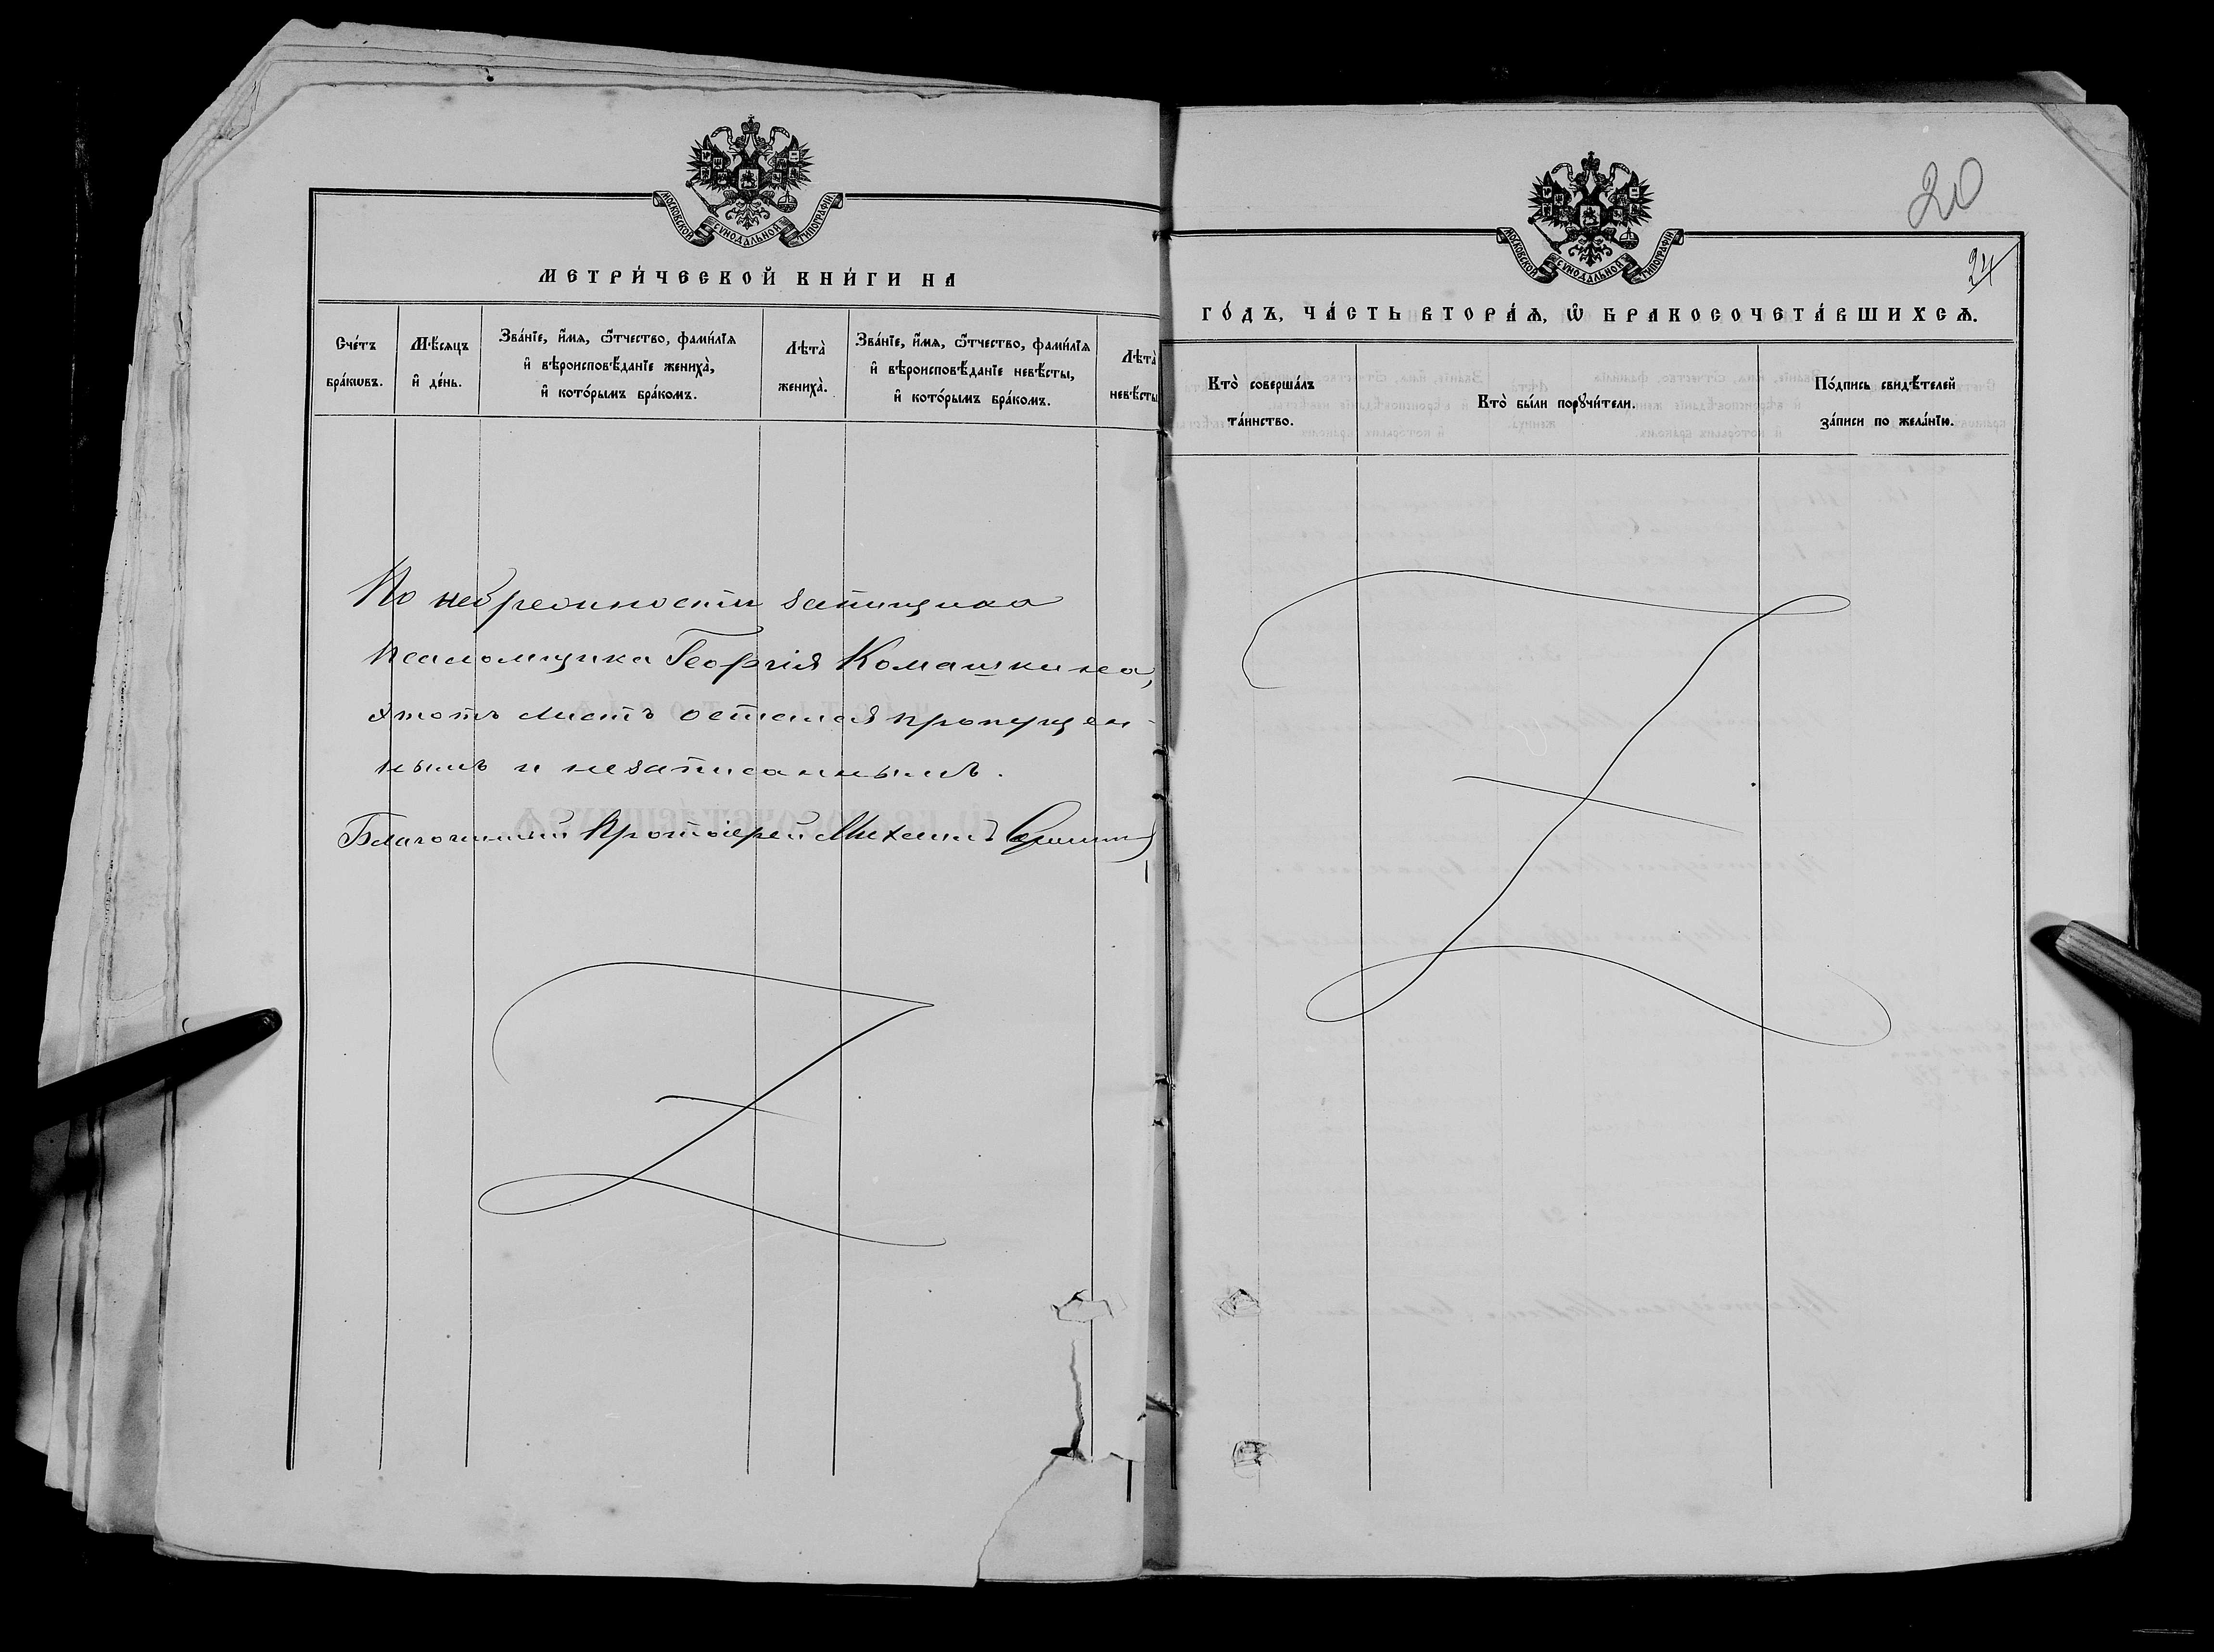 МОСКОВСКОЙ СУНОДАЛЬНОЙ ТИПОГРАФІИ
МЕТРИ́ЧЕСКОЙ КНИ́ГИ НА
Сче́тъ бра́кѡвъ.
Мѣ́сяцъ и҆ де́нь.
Зва́нїе, и҆́мя, ѻ҆́тчество, фами́лїя
и҆ вѣроисповѣ́данїе жениха̀,
и҆ кото́рымъ бра́комъ.
Лѣта̀ жениха̀.
Зва́нїе, и҆́мя, ѻ҆́тчество, фами́лїя
и҆ вѣроисповѣ́данїе невѣ́сты,
и҆ кото́рымъ бра́комъ.
Лѣта̀ невѣ́сты
По небрежности запищика
псаломщика Георгія Комашкина,
этотъ листъ остался пропущен-
нымъ и незаписаннымъ.
Благочинный Протоіерей Михаилъ
20
24
МОСКОВСКОЙ СУНОДАЛЬНОЙ ТИПОГРАФІИ
ГО́ДЪ, ЧА́СТЬ ВТОРА́Ѧ, Ѡ҆ БРАКОСОЧЕТА́ВШИХСѦ.
Кто̀ соверша́лъ
та́инство.
Кто̀ бы́ли порꙋчи́тели.
По́дпись свидѣ́телей
за́писи по жела́нїю.